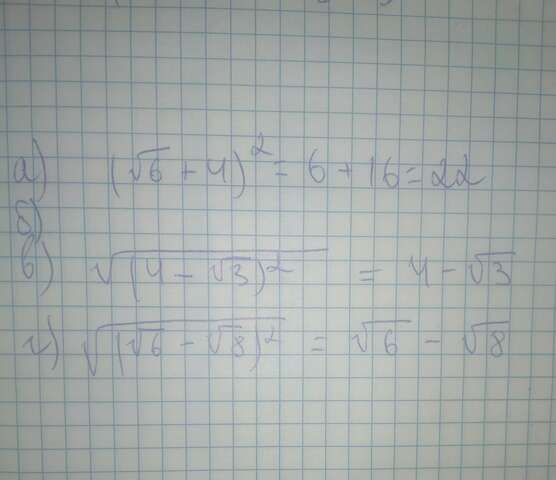 а) (√6 + 4)² = 6 + 16 = 22
б)
в) √((4 - √3)²) = 4 - √3
г) √((√6 - √8)²) = √6 - √8